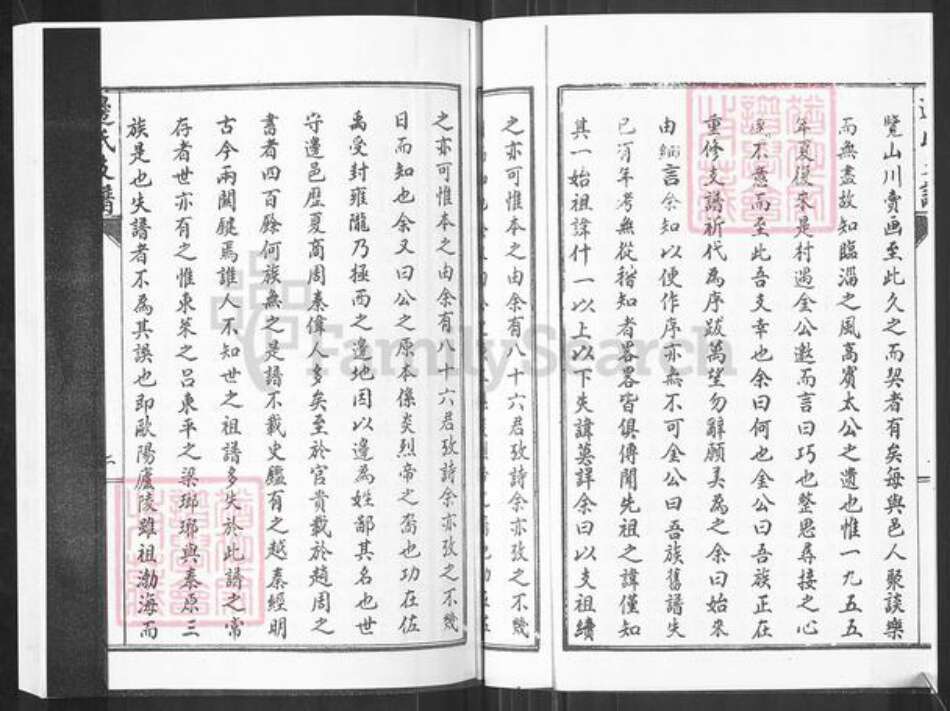 覽山川賣画至此久之而契者有矣每與邑人聚談樂
而無盡故知臨淄之風高賓太公之遺也惟一九五五
年夏復來是村遇金公邀而言曰巧也整思尋接之心
不意而至此吾支幸也余曰何也金公曰吾族正在
重修支譜祈代為序跋萬望勿辭願美為之余曰始來
由緬言余知以便作序亦無不可金公曰吾族舊譜失
已有年考無從稽知者畧畧皆俱傳聞先祖之諱僅知
其一始祖諱什一以上以下失諱墓詳余曰以支祖續
之亦可惟本之由余有八十六君攷詩余亦攷之不幾
之亦可惟本之由余有八十六君攷詩余亦攷之不幾
日而知也余又曰公之原本係炎烈帝之裔也功在佐
禹受封雍隴乃極西之邊地因以邊為姓鄙其名也世
守邊邑歷夏商周秦偉人多矣至於官貴載於趙周之
書者四百餘何族無之是譜不載史鑑有之越秦經明
古今兩關鍵焉誰人不知世之祖譜多失於此譜之常
存者世亦有之惟東萊之呂東平之梁瑯琊與秦原三
族是也失譜者不為其誤也即歐陽廬陵雖祖渤海而
邊氏支譜
FamilySearch